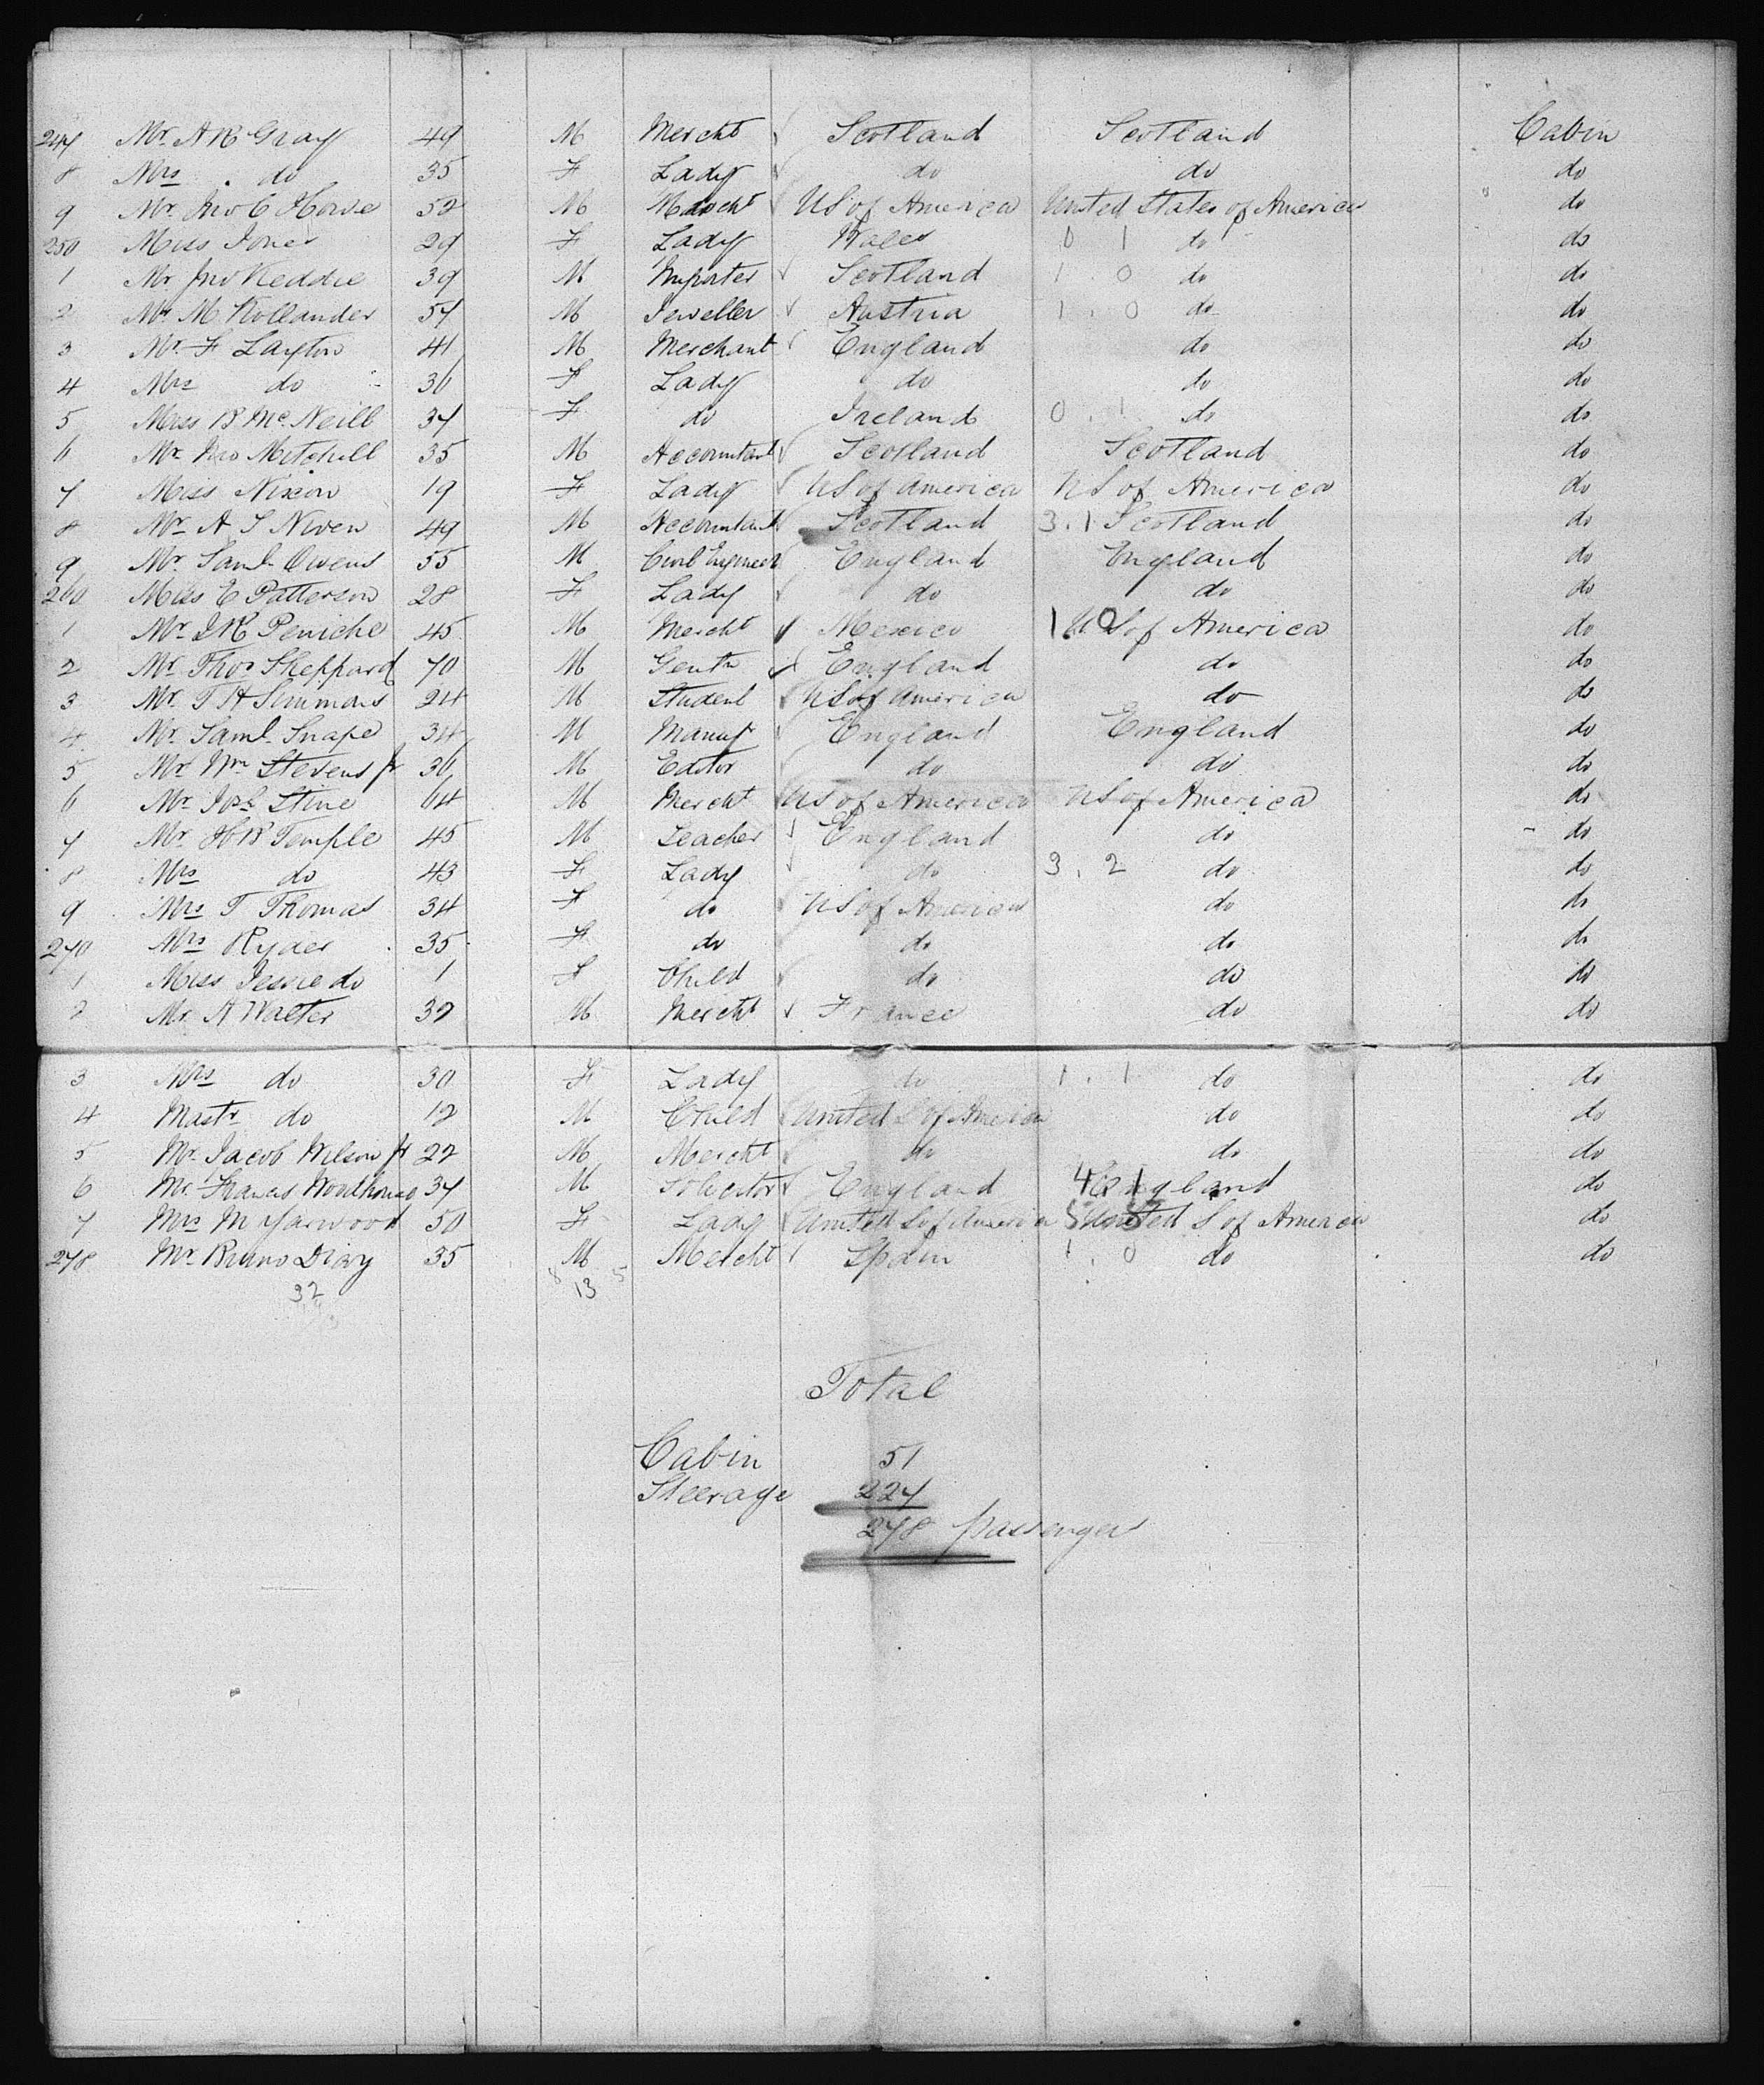 247 Mr. A R Gray 49 M Mercht Scotland Scotland Cabin
8 Mrs do 35 F Lady do do do
9 Mr. Jno C Howe 52 M Mercht US of America United States of America do
250 Miss Jones 29 F Lady Wales 0 1 do do
1 Mr Jno Keddie 39 M Importer Scotland 1 . 0 do do
2 Mr M Kollander 54 M Jeweller Austria 1 . 0 do do
3 Mr. F Layton 41 M Merchant England do do
4 Mrs do 36 F Lady do do do
5 Miss B McNeill 34 F do Ireland 0 . 1 do do
6 Mr. Jno Mitchell 35 M Accountant Scotland Scotland do
7 Miss Nixon 19 F Lady US of America US of America do
8 Mr A S Niven 49 M Accountant Scotland 3.1 Scotland do
9 Mr. Saml Owens 55 M Civil Engineer England England do
260 Miss E Patterson 28 F Lady do do do
1 Mr J R Peniche 45 M Mercht Mexico 1 0 US of America do
2 Mr Thos Sheppard 70 M Gentn England do do
3 Mr. T H Simmons 24 M Student US of America do do
4 Mr. Saml. Snape 34 M Manuf England England do
5 Mr Wm Stevens jr 36 M Editor do do do
6 Mr. Josh Stine 64 M Mercht US of America US of America do
7 Mr. H B Temple 45 M Teacher England do do
8 Mrs do 43 F Lady do 3 . 2 do do
9 Mrs T Thomas 34 F do US of America do do
270 Mrs Ryder 35 F do do do do
1 Miss Jessie do 1 F Child do do do
2 Mr A Walter 32 M Mercht France do do
3 Mrs do 30 F Lady do 1 . 1 do do
4 Mastr do 12 M Child United S of America do do
5 Mr. Jacob Wilson jr 22 M Mercht do do do
6 Mr. Francis Woodhouse 34 M Solicitor England 4 . 1 England do
7 Mrs M Yarwood 50 F Lady United S of America United S of America do
278 Mr Bruno Diary 35 M Mercht Spain 1 . 0 do do
32 8 13 5
Total
Cabin 51
Steerage 227
278 passengers